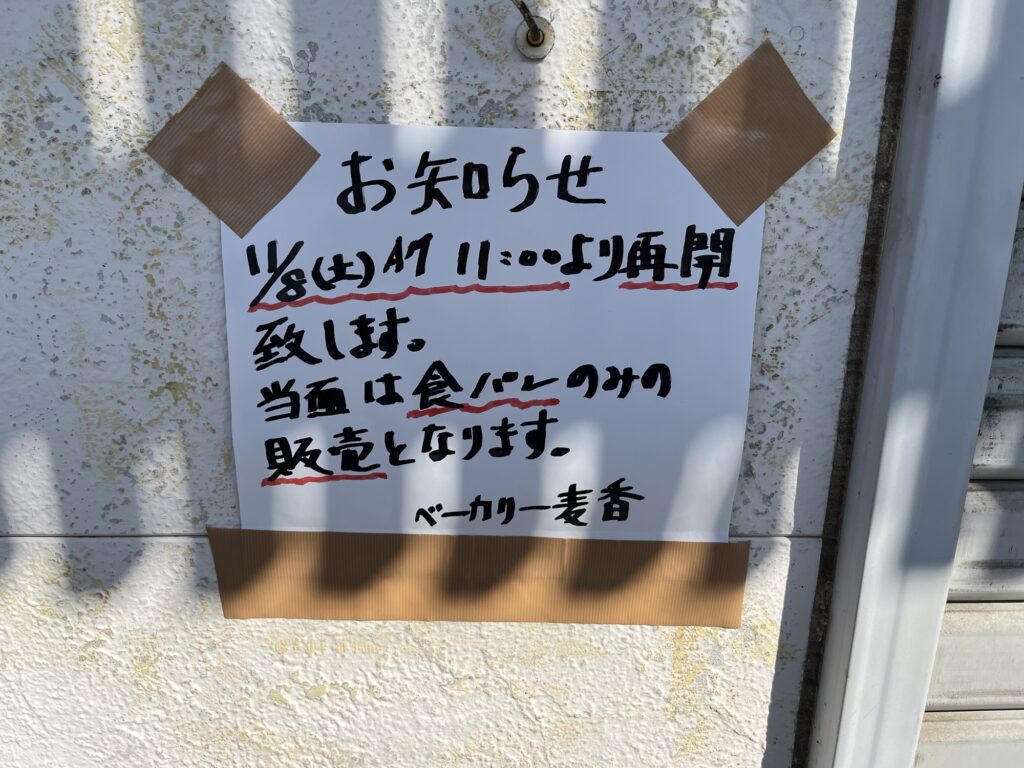 お知らせ
11/8(土) AM 11:00より再開
致します。
当面は食パンのみの
販売となります。
ベーカリー麦香